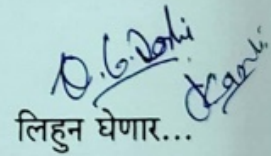 D. G. Doshi
लिहुन घेणार...